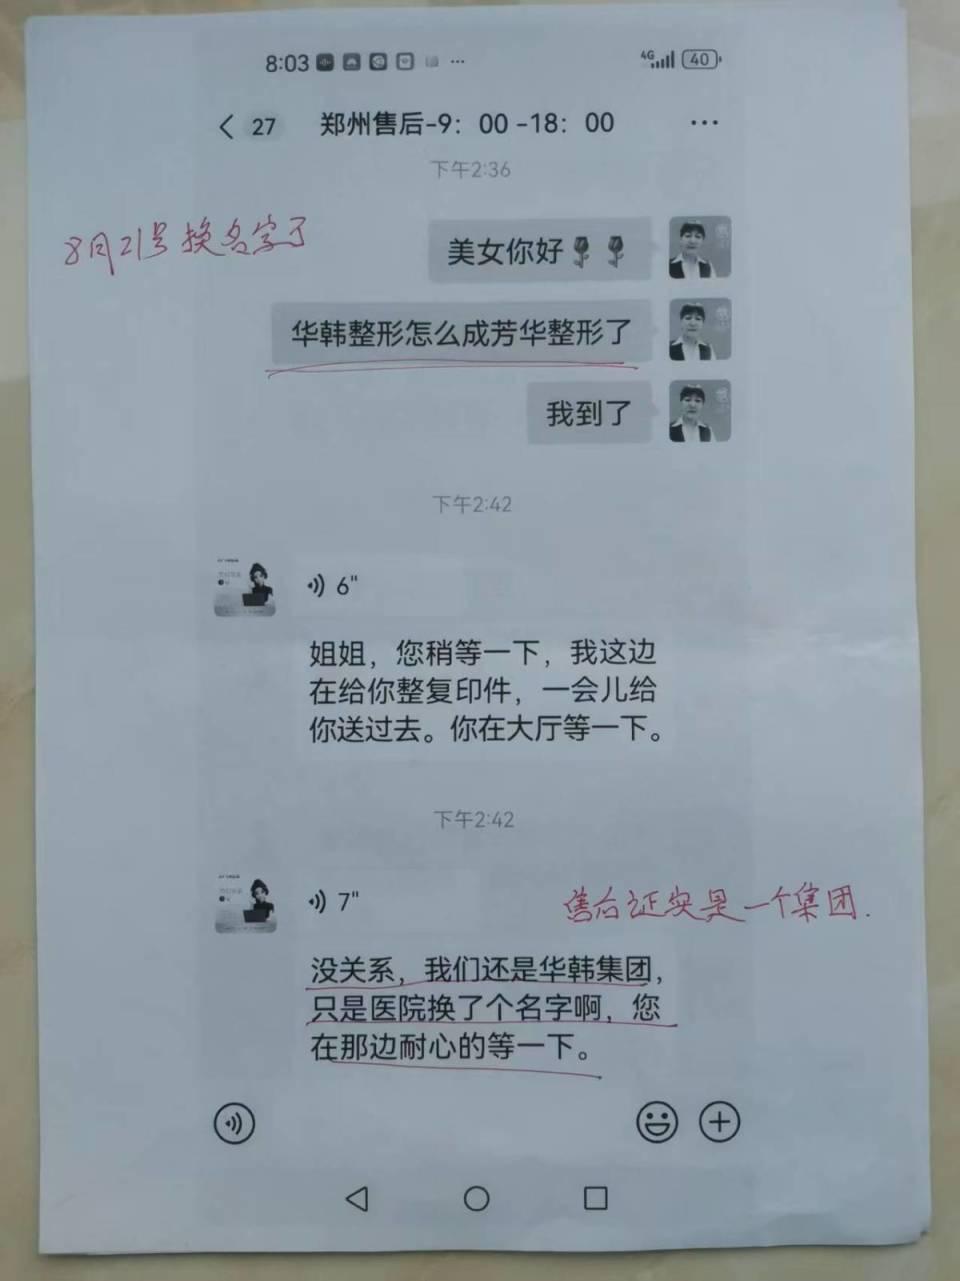 8:03
4G
40
27
郑州售后-9：00 -18：00
下午2:36
8月21号换名字了
美女你好
华韩整形怎么成芳华整形了
我到了
下午2:42
6"
姐姐，您稍等一下，我这边
在给你整复印件，一会儿给
你送过去。你在大厅等一下。
下午2:42
7"
售后证实是一个集团.
没关系，我们还是华韩集团，
只是医院换了个名字啊，您
在那边耐心的等一下。